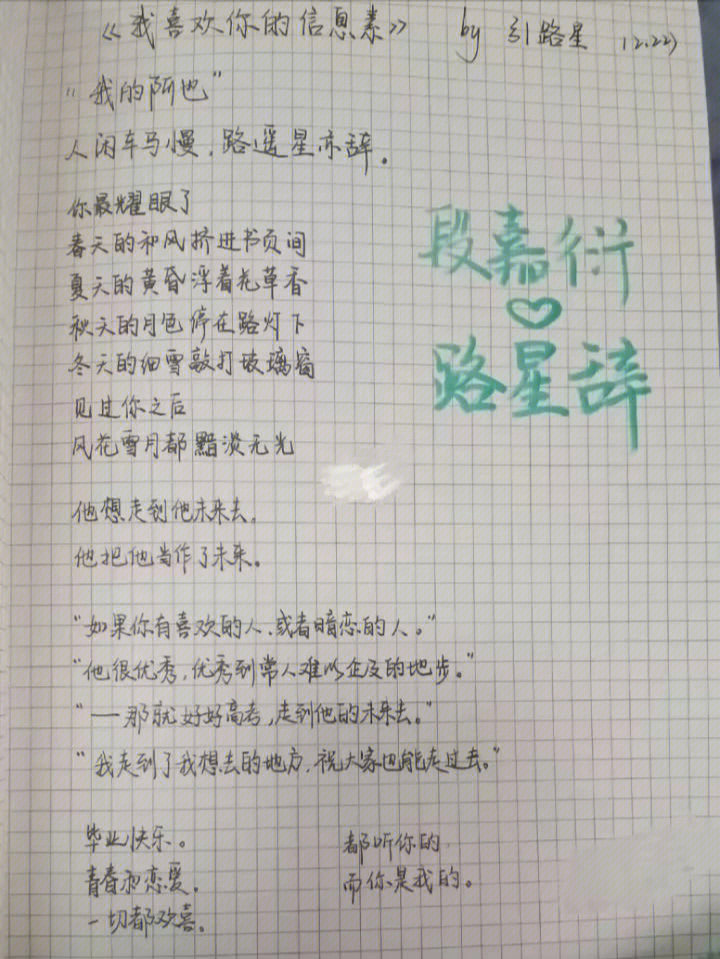 《我喜欢你的信息素》 by 引路星 12.22)
“我的阿也”
人闲车马慢，路遥星亦辞。
你最耀眼了
春天的和风挤进书页间
夏天的黄昏浮着花草香
秋天的月色停在路灯下
冬天的细雪敲打玻璃窗
见过你之后
风花雪月都黯淡无光
段嘉衍
♡
路星辞
他想走到他未来去。
他把他当作了未来。
“如果你有喜欢的人、或者暗恋的人。”
“他很优秀，优秀到常人难以企及的地步。”
“——那就好好高考，走到他的未来去。”
“我走到了我想去的地方，祝大家也能走过去。”
毕业快乐。
青春和恋爱。
一切都欢喜。
都听你的
而你是我的。